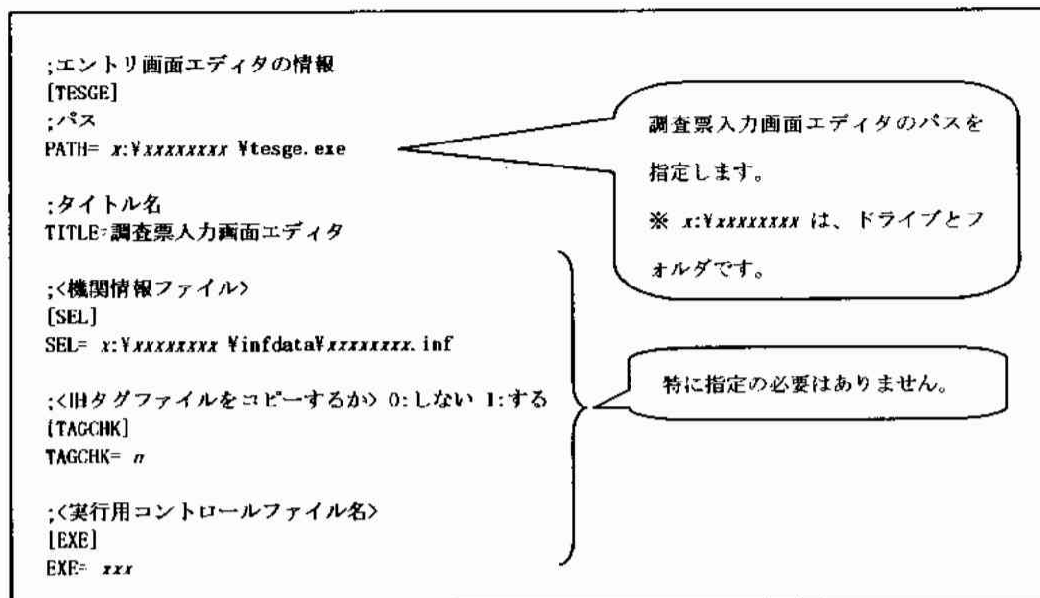 ;エントリ画面エディタの情報
[TESGE]
;パス
PATH= x:¥xxxxxxxx ¥tesge.exe
;タイトル名
TITLE=調査票入力画面エディタ
;<機関情報ファイル>
[SEL]
SEL= x:¥xxxxxxxx ¥infdata¥xxxxxxxx.inf
;<旧タグファイルをコピーするか> 0:しない 1:する
[TAGCHK]
TAGCHK= n
;<実行用コントロールファイル名>
[EXE]
EXE= xxx
調査票入力画面エディタのパスを
指定します。
※ x:¥xxxxxxxx は、ドライブとフ
ォルダです。
特に指定の必要はありません。